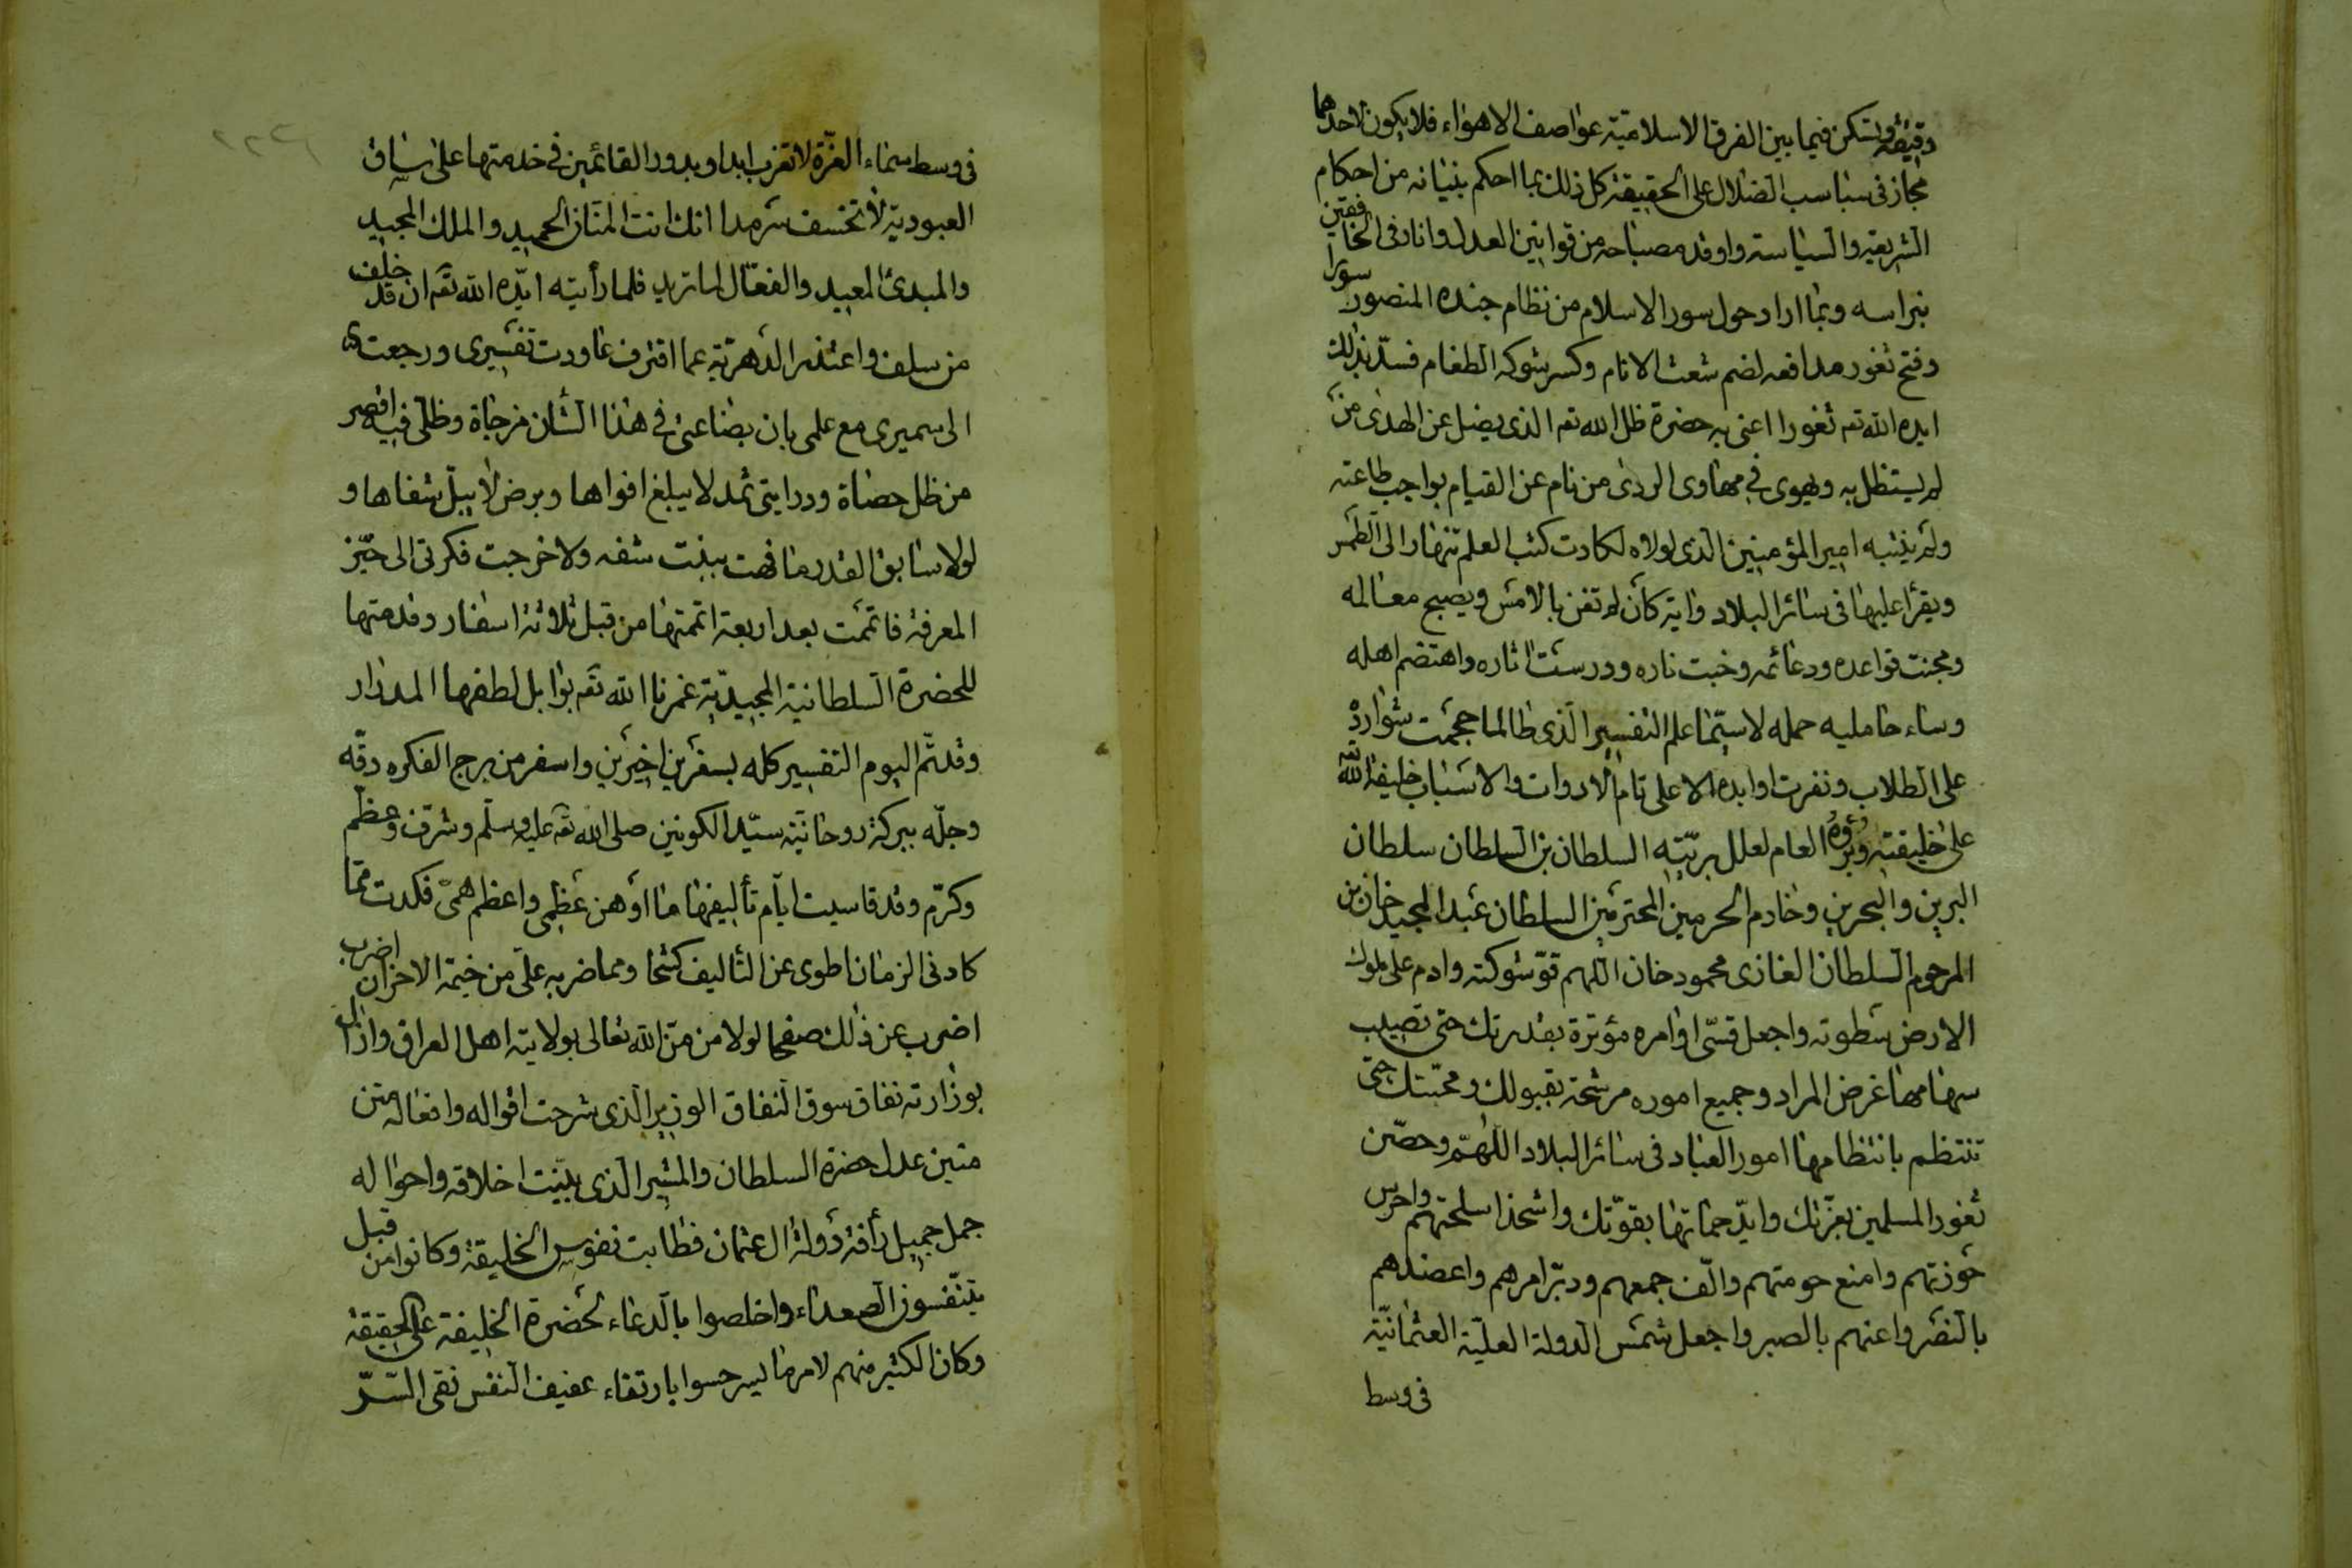 دقيقة وتسكن فيما بين الفرق الاسلامية عواصف الاهواء فلا يكون لاحدهما
مجاز في سباسب الضلال على الحقيقة كل ذلك بما احكم بنيانه من احكام
الشريعة والسياسة واوقد مصباحه من قوانين العدل وانار في الخافقين
نبراسه وبما ادار حول سور الاسلام من نظام جنده المنصور سورا
وفتح ثغور مدافعه لضم شعث الانام وكسر شوكة الطغام فسدّ بذلك
ايده الله تعه ثغورا اعني به حضرة ظل الله تعه الذي يضل عن الهدى من
لم يستظل به ويهوي في مهاوى الردى من نام عن القيام بواجب طاعته
ولم ينتبه امير المؤمنين الذي لولاه لكادت كتب العلم تنهار الى الطمر
ويقرأ عليها في سائر البلاد واية كأن لم تغن بالامس ويصبح معالمه
ومجنت قواعده ودعائمه وخبت ناره ودرست اثاره واهتضم اهله
وساء حامليه حمله لاسيّما علم التفسير الذي طالما جمحت شوارده
على الطلاب ونفرت اوابده الا على تام الادوات والاسباب خليفة الله تعه
على خليقته وبرؤه العام لعلل بريّته السلطان بن السلطان سلطان
البرين والبحرين وخادم الحرمين المحترمين السلطان عبد المجيد خان بن
المرحوم السلطان الغازى محمود خان اللهم قوّ شوكته وادم على ملوك
الارض سطوته واجعل قسىّ اوامره مؤترة بقدرتك حتى تصيب
سهامها غرض المراد وجميع اموره مرشحة بقبولك ومحبّتك حتى
تنتظم بانتظامها امور العباد في سائر البلاد اللهمّ وحصّن
ثغور المسلمين بعزّتك وايّد حماتها بقوّتك واشحذ اسلحتهم واحرس
حوزتهم وامنع حومتهم والّف جمعهم ودبّر امرهم واعضدهم
بالنصر واعنهم بالصبر واجعل شمس الدولة العليّة العثمانيّة
في وسط
في وسط سماء العزّة لا تغرب ابدا وبدور القائمين في خدمتها على ساق
العبودية لا تخسف سرمدا انك انت المنان الحميد والملك المجيد
والمبدئ المعيد والفعّال لما تريد فلما رأيته ايّده الله تعه ان قد خلف
من سلف واعتذر الدهر به عما اقترف عاودت تفسيرى ورجعت
الى سميرى مع علمى بان بضاعتى في هذا الشأن مزجاة وظلّى فيه اقصر
من ظل حصاة ودرايتى ثمد لا يبلغ افواها وبرض لا يبلّ شفاها و
لولا سابق القدر ما فهت ببنت شفه ولا خرجت فكرتى الى حيّز
المعرفة فاتممت بعد اربعة اتممتها من قبل ثلاثة اسفار وقدمتها
للحضرة السلطانية المجيديّة غمرنا الله تعه بوابل لطفها المدرار
وقد تمّ اليوم التفسير كله بسفرين اخيرين واسفر من برج الفكره دقّه
وجلّه ببركة روحانيّة سيّد الكونين صلى الله تعه عليه وسلّم وشرّف وعظم
وكرّم وقد قاسيت ايّام تأليفها ما اوهن عظمى واعظم همى فكدت ممّا
كادنى الزمان اطوى عن التأليف كشحا ومما ضربه علىّ من خيمة الاحزان اضرب
اضرب عن ذلك صفحا لولا من منّ الله تعالى بولايته اهل العراق وازال
بوزارته نفاق سوق النفاق الوزير الذي شرحت اقواله وافعاله متن
متين عدل حضرة السلطان والمشير الذي بيّنت اخلاقه واحواله
جمل جميل رأفة دولة ال عثمان فطابت نفوس الخليقة وكانوا من قبل
يتنفّسون الصعداء واخلصوا بالدعاء لحضرة الخليفة على الحقيقة
وكان الكثير منهم لامر ما ليسر حسوا بارتغاء عفيف النفس نقى السّرّ